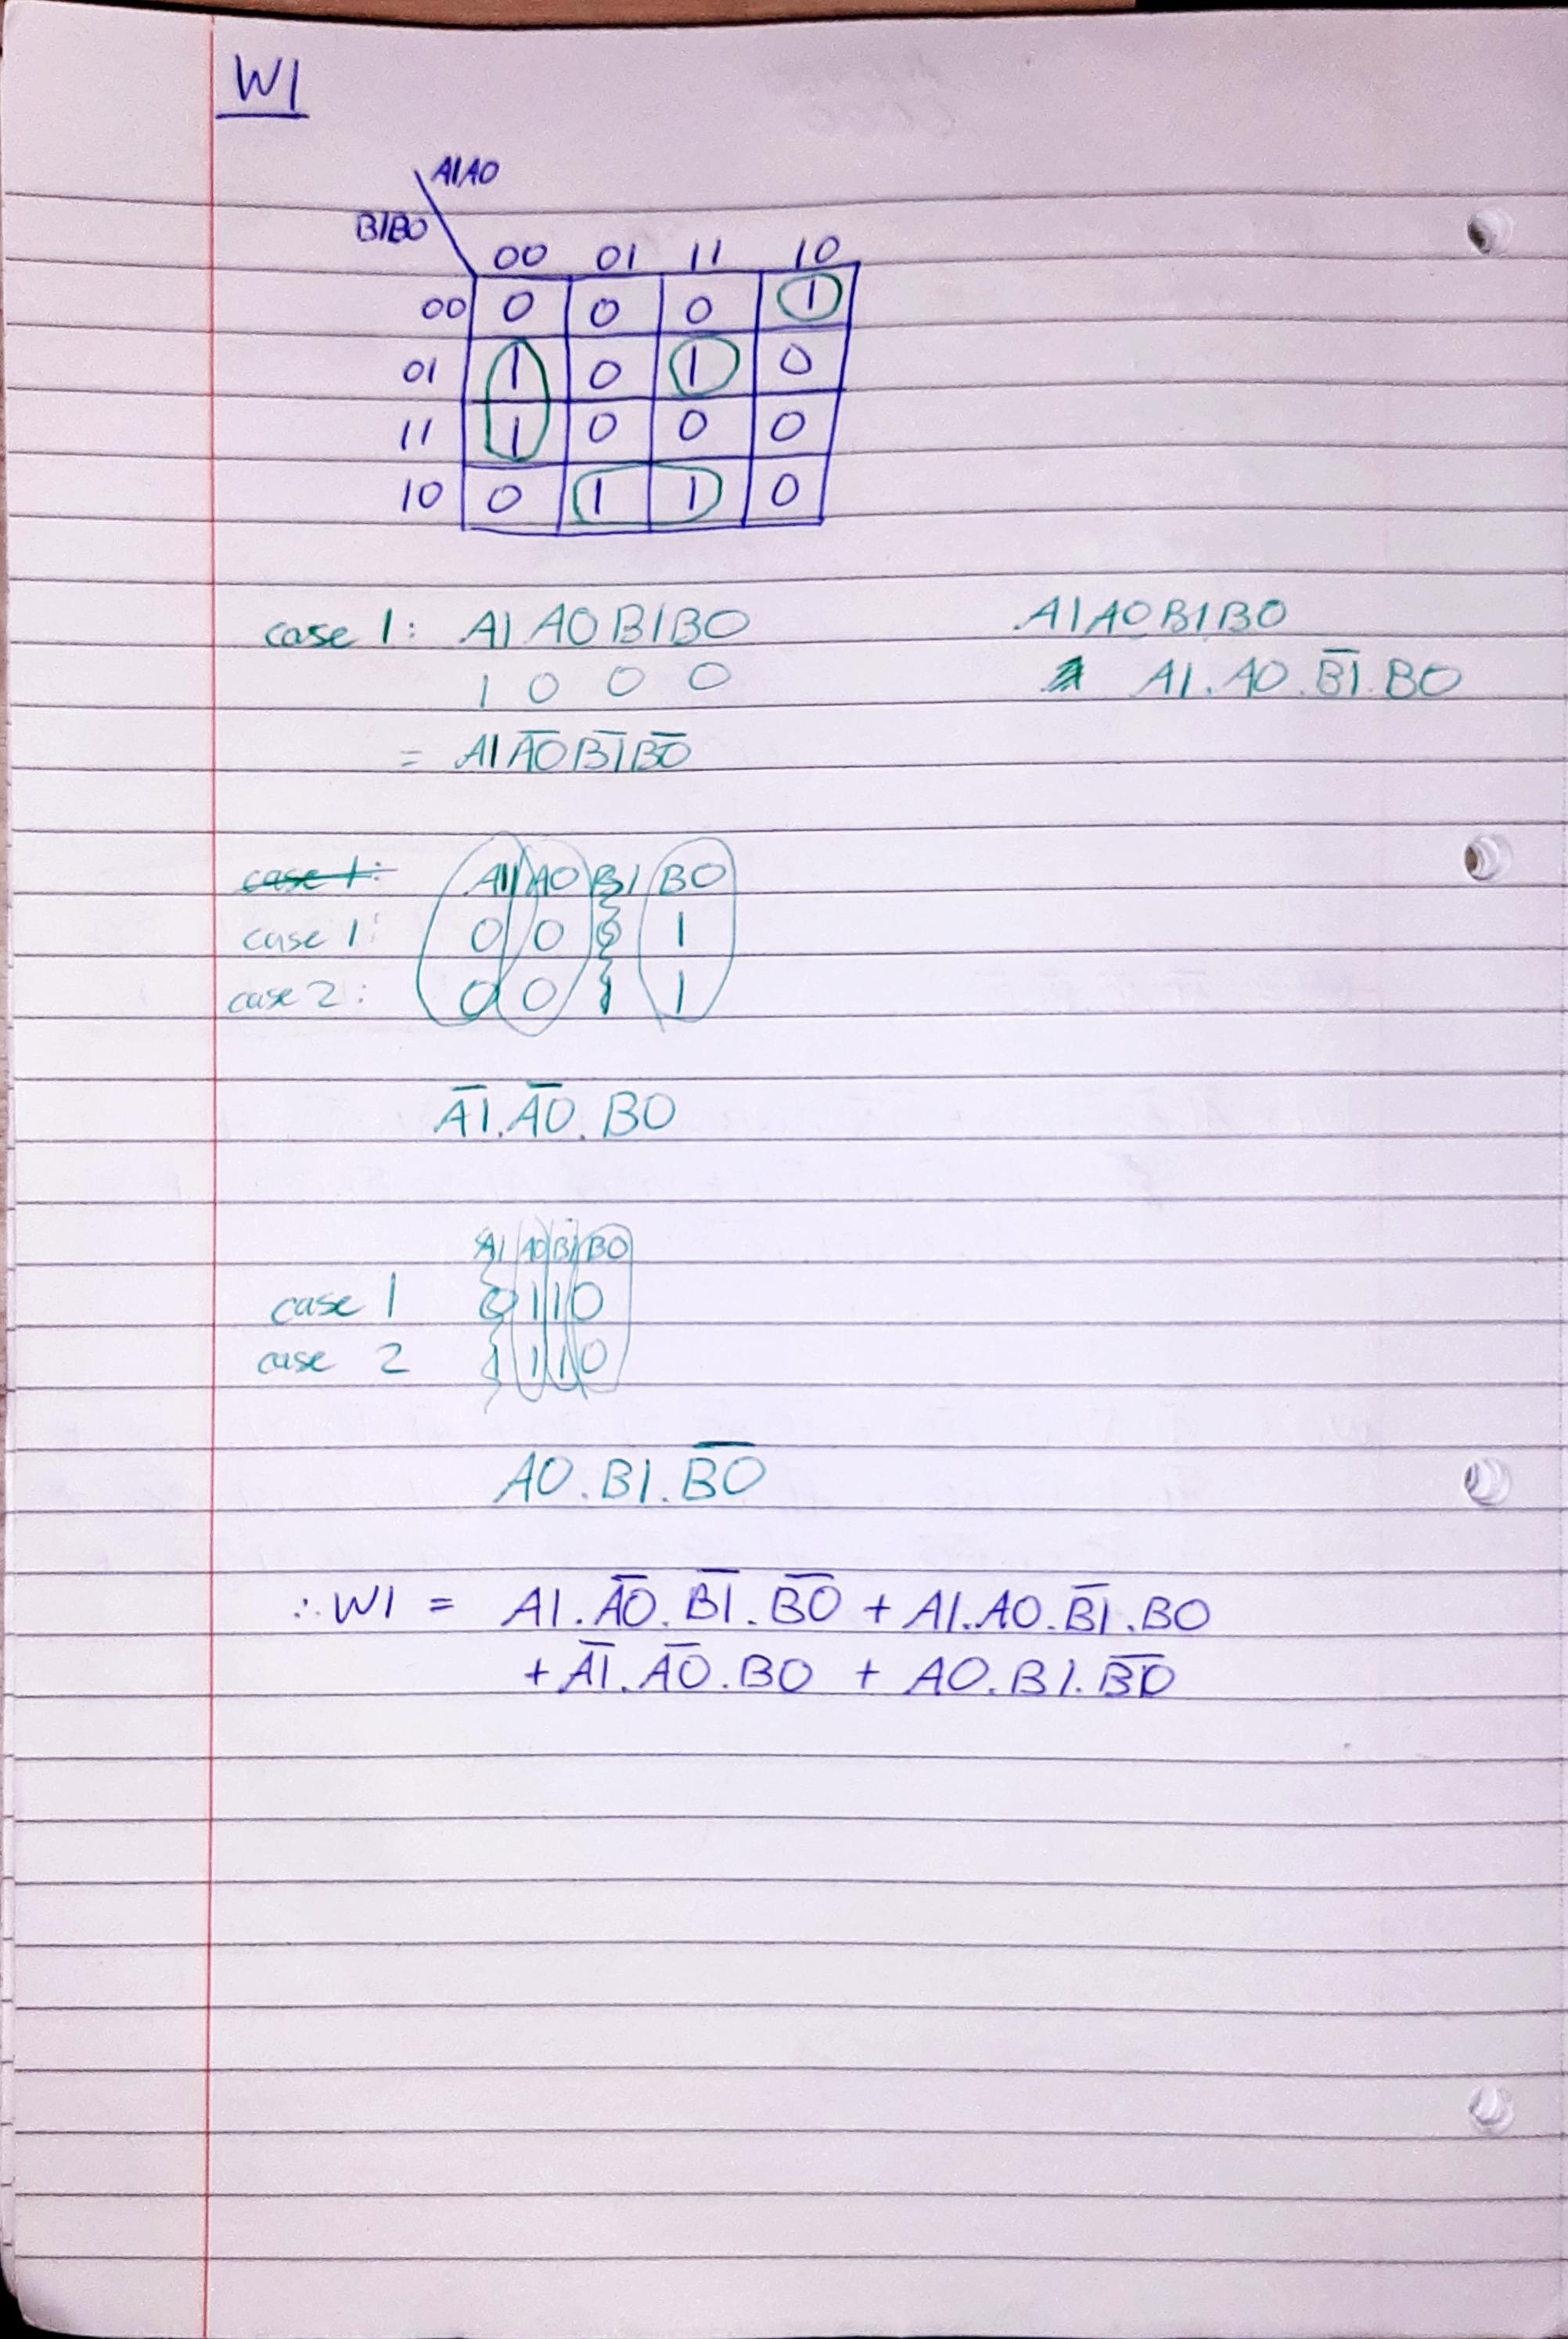 W1
A1A0
B1B0
00 01 11 10
00 0 0 0 1
01 1 0 1 0
11 1 0 0 0
10 0 1 1 0
case 1: A1 A0 B1 B0
1 0 0 0
= A1 A̅0̅ B̅1̅ B̅0̅
A1A0B1B0
A1.A0.B̅1̅.B0
case 1:
A1 A0 B1 B0
case 1: 0 0 0 1
case 2: 0 0 1 1
A̅1̅.A̅0̅.B0
A1 A0 B1 B0
case 1 0 1 1 0
case 2 1 1 1 0
A0.B1.B̅0̅
∴ W1 = A1.A̅0̅.B̅1̅.B̅0̅ + A1.A0.B̅1̅.B0
+ A̅1̅.A̅0̅.B0 + A0.B1.B̅0̅